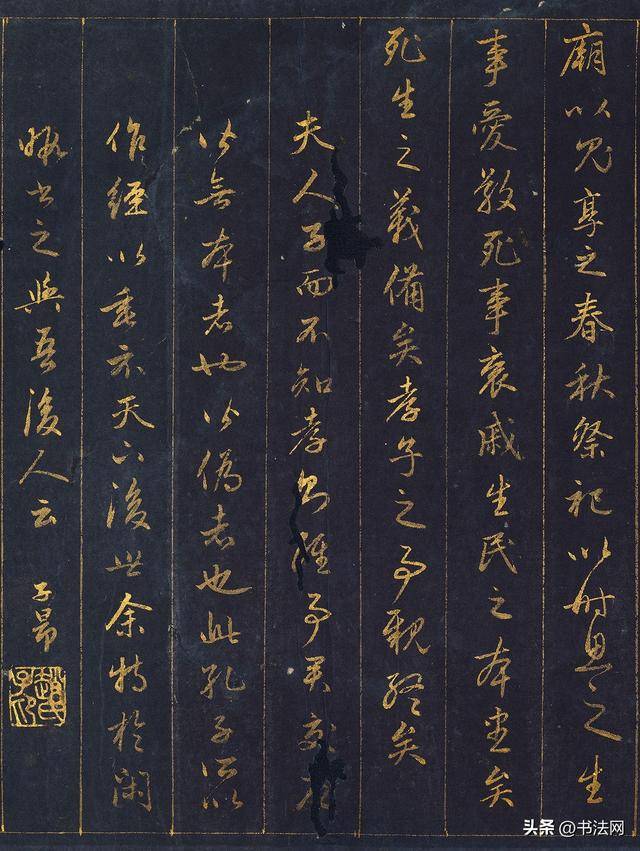 廟以鬼享之春秋祭祀以時思之生
事愛敬死事哀戚生民之本盡矣
死生之義備矣孝子之事親終矣
夫人子而不知孝雖事君交友
皆無本者也皆偽者也此孔子所以
作經以垂示天下後世余特於閑
暇書之與吾後人云 子昂
趙氏子昂
头条 @书法网